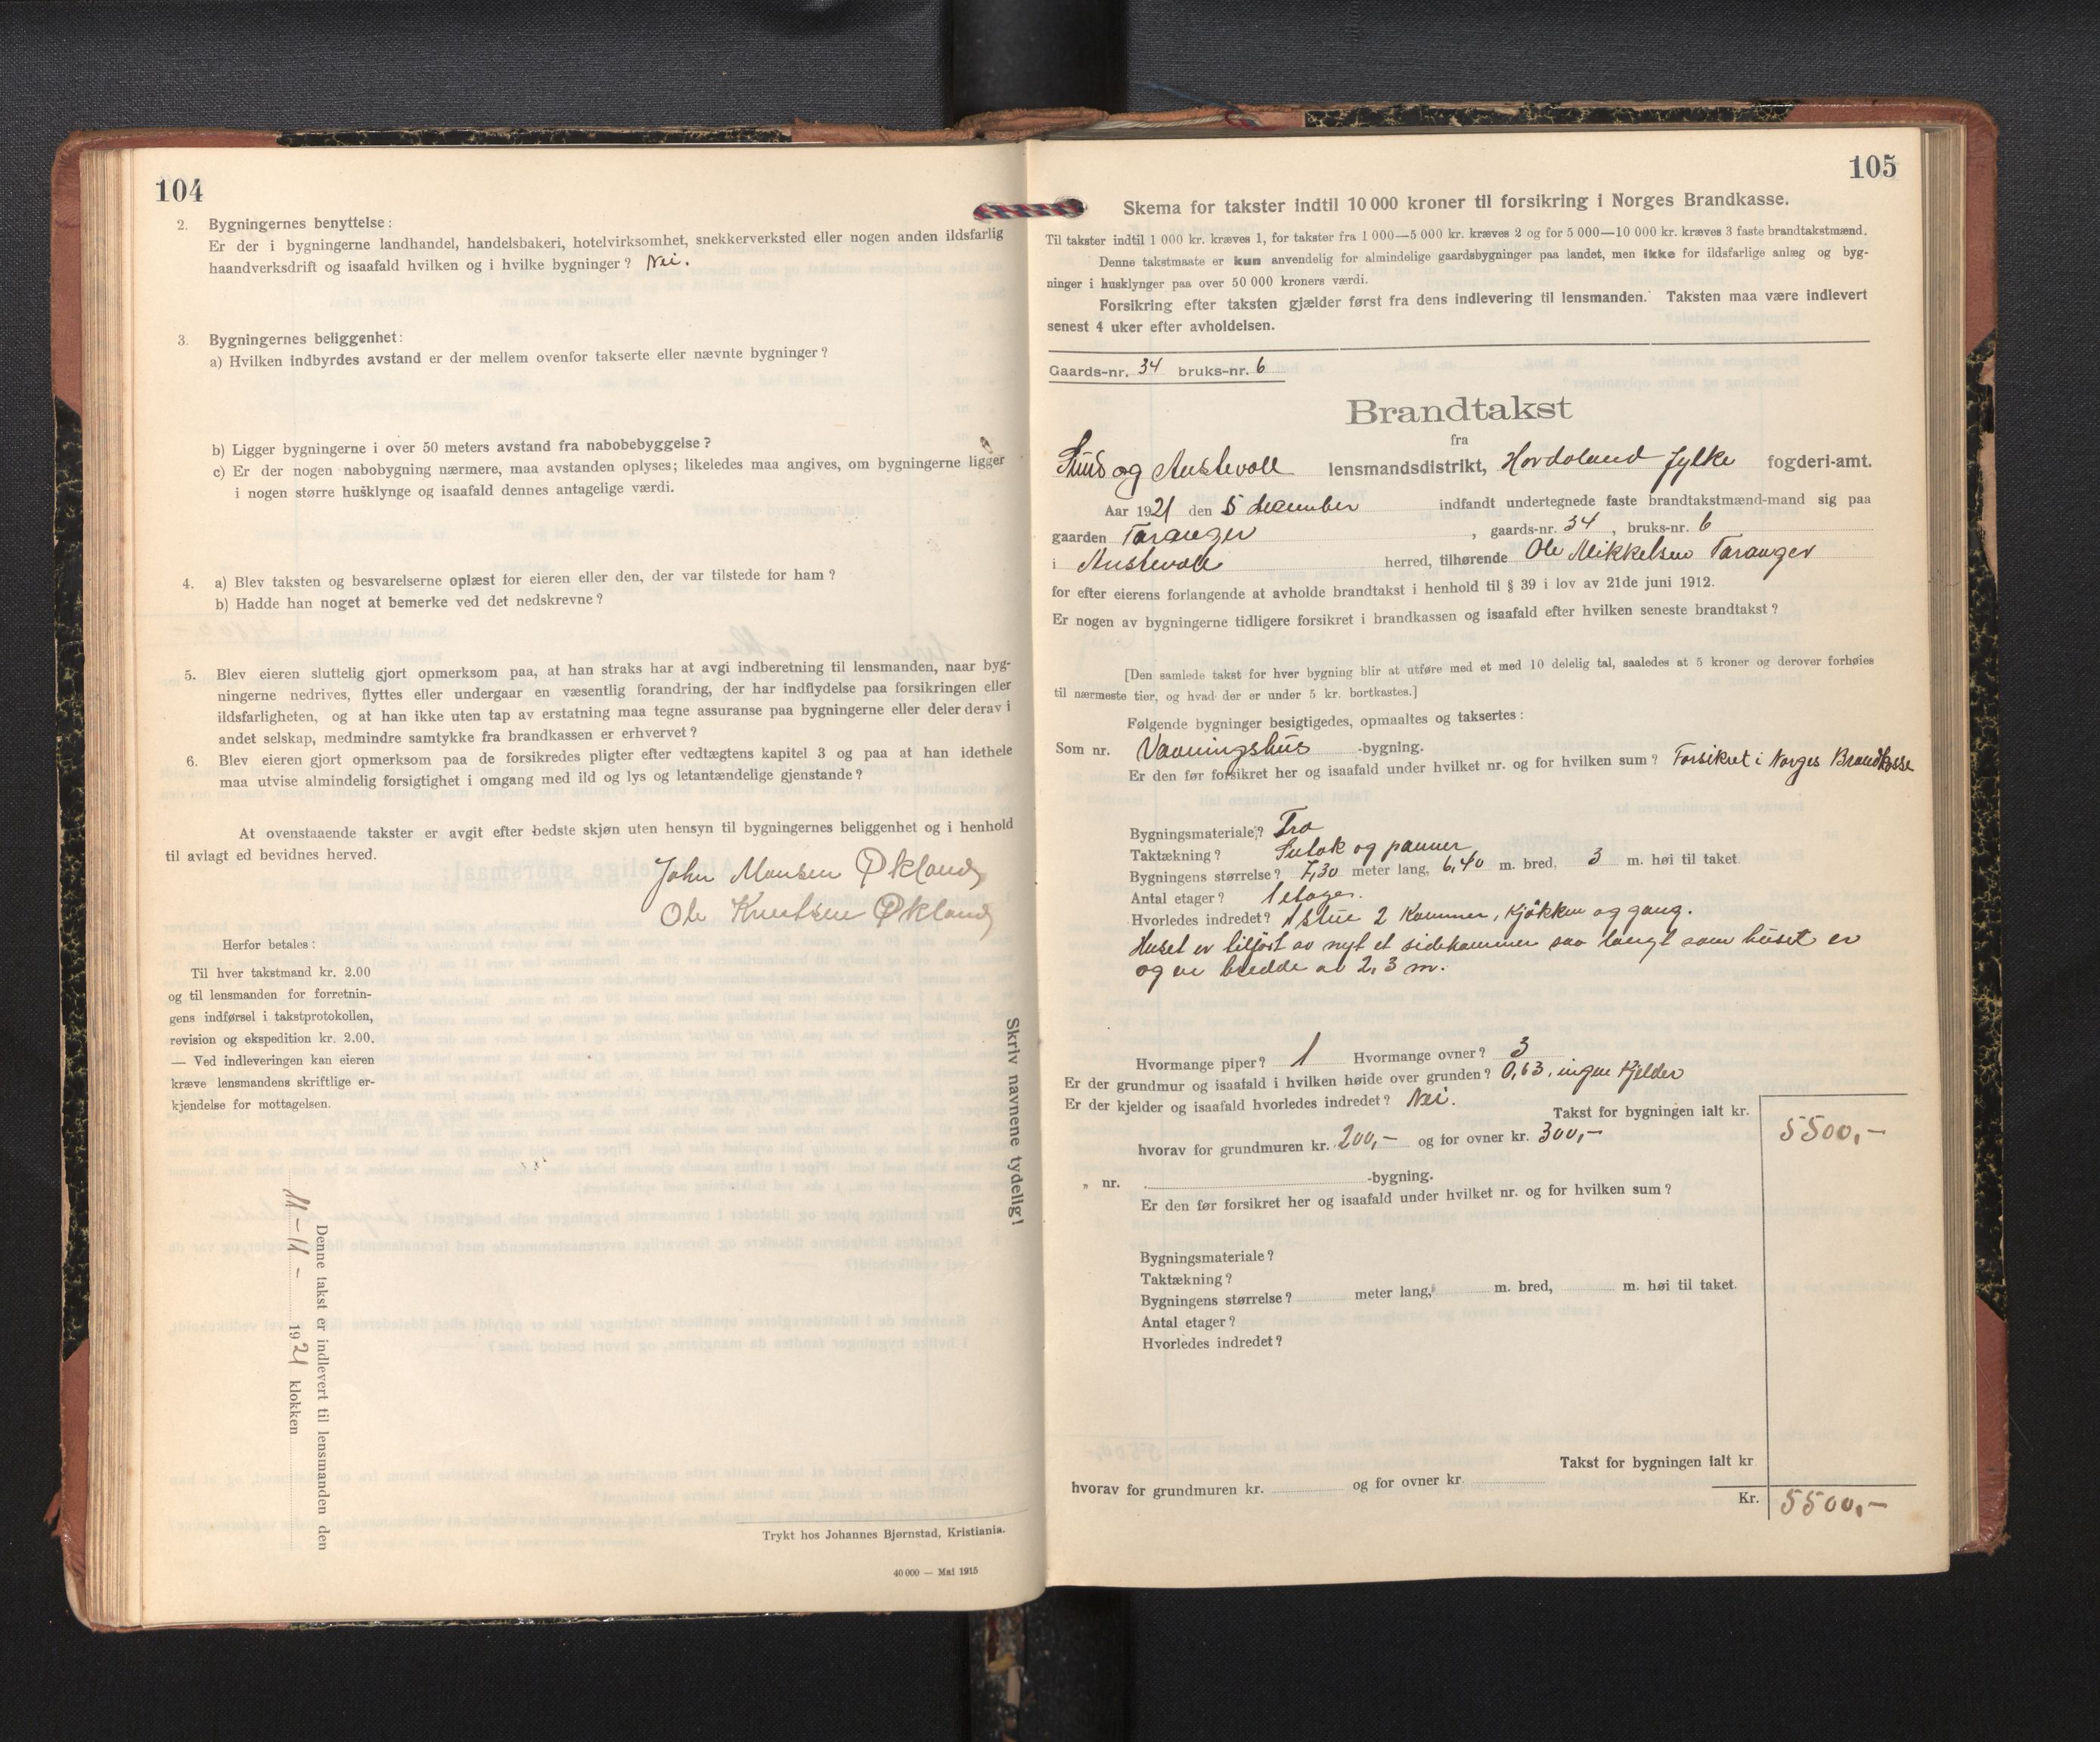 104
2. Bygningernes benyttelse:
Er der i bygningerne landhandel, handelsbakeri, hotelvirksomhet, snekkerverksted eller nogen anden ildsfarlig
haandverksdrift og isaafald hvilken og i hvilke bygninger? Nei.
3. Bygningernes beliggenhet:
a) Hvilken indbyrdes avstand er der mellem ovenfor takserte eller nævnte bygninger?
b) Ligger bygningerne i over 50 meters avstand fra nabobebyggelse?
c) Er der nogen nabobygning nærmere, maa avstanden oplyses; likeledes maa angives, om bygningerne ligger
i nogen større husklynge og isaafald dennes antagelige værdi.
4. a) Blev taksten og besvarelserne oplæst for eieren eller den, der var tilstede for ham?
b) Hadde han noget at bemerke ved det nedskrevne?
5. Blev eieren sluttelig gjort opmerksom paa, at han straks har at avgi indberetning til lensmanden, naar byg-
ningerne nedrives, flyttes eller undergaar en væsentlig forandring, der har indflydelse paa forsikringen eller
ildsfarligheten, og at han ikke uten tap av erstatning maa tegne assuranse paa bygningerne eller deler derav i
andet selskap, medmindre samtykke fra brandkassen er erhvervet?
6. Blev eieren gjort opmerksom paa de forsikredes pligter efter vedtægtens kapitel 3 og paa at han idethele
maa utvise almindelig forsigtighet i omgang med ild og lys og letantændelige gjenstande?
At ovenstaaende takster er avgit efter bedste skjøn uten hensyn til bygningernes beliggenhet og i henhold
til avlagt ed bevidnes herved.
John Monsen Økland
Ole Knutsen Økland
Herfor betales:
Til hver takstmand kr. 2.00
og til lensmanden for forretnin-
gens indførsel i takstprotokollen,
revision og ekspedition kr. 2.00.
— Ved indleveringen kan eieren
kræve lensmandens skriftlige er-
kjendelse for mottagelsen.
Skriv navnene tydelig!
Denne takst er indlevert til lensmanden den
11-11- 1921 klokken
Trykt hos Johannes Bjørnstad, Kristiania.
40 000 — Mai 1915
105
Skema for takster indtil 10 000 kroner til forsikring i Norges Brandkasse.
Til takster indtil 1 000 kr. kræves 1, for takster fra 1 000—5 000 kr. kræves 2 og for 5 000—10 000 kr. kræves 3 faste brandtakstmænd.
Denne takstmaate er kun anvendelig for almindelige gaardsbygninger paa landet, men ikke for ildsfarlige anlæg og byg-
ninger i husklynger paa over 50 000 kroners værdi.
Forsikring efter taksten gjælder først fra dens indlevering til lensmanden. Taksten maa være indlevert
senest 4 uker efter avholdelsen.
Gaards-nr. 34 bruks-nr. 6
Brandtakst
fra
Sund og Austevoll lensmandsdistrikt, Hordaland fylke fogderi-amt.
Aar 1921 den 5 december indfandt undertegnede faste brandtakstmænd-mand sig paa
gaarden Taranger, gaards-nr. 34, bruks-nr. 6
i Austevoll herred, tilhørende Ole Mikkelsen Taranger
for efter eierens forlangende at avholde brandtakst i henhold til § 39 i lov av 21de juni 1912.
Er nogen av bygningerne tidligere forsikret i brandkassen og isaafald efter hvilken seneste brandtakst?
[Den samlede takst for hver bygning blir at utføre med et med 10 delelig tal, saaledes at 5 kroner og derover forhøies
til nærmeste tier, og hvad der er under 5 kr. bortkastes.]
Følgende bygninger besigtigedes, opmaaltes og taksertes:
Som nr. Vaaningshus -bygning.
Er den før forsikret her og isaafald under hvilket nr. og for hvilken sum? Forsikret i Norges Brandkasse
Bygningsmateriale? Træ
Taktækning? Sutak og panner
Bygningens størrelse? 7,30 meter lang, 6,40 m. bred, 3 m. høi til taket.
Antal etager? 1 etage.
Hvorledes indredet? 1 stue 2 Kammer, kjøkken og gang.
Huset er tilført av nyt et sidekammer saa langt som huset er
og en bredde av 2,3 m.
Hvormange piper? 1 Hvormange ovner? 3
Er der grundmur og isaafald i hvilken høide over grunden? 0,63, ingen Kjelder
Er der kjelder og isaafald hvorledes indredet? Nei.
Takst for bygningen ialt kr. 5500,-
hvorav for grundmuren kr. 200,- og for ovner kr. 300,-
„ nr. -bygning.
Er den før forsikret her og isaafald under hvilket nr. og for hvilken sum?
Bygningsmateriale?
Taktækning?
Bygningens størrelse? meter lang, m. bred, m. høi til taket.
Antal etager?
Hvorledes indredet?
Takst for bygningen ialt kr
hvorav for grundmuren kr. og for ovner kr.
Kr. 5500,-